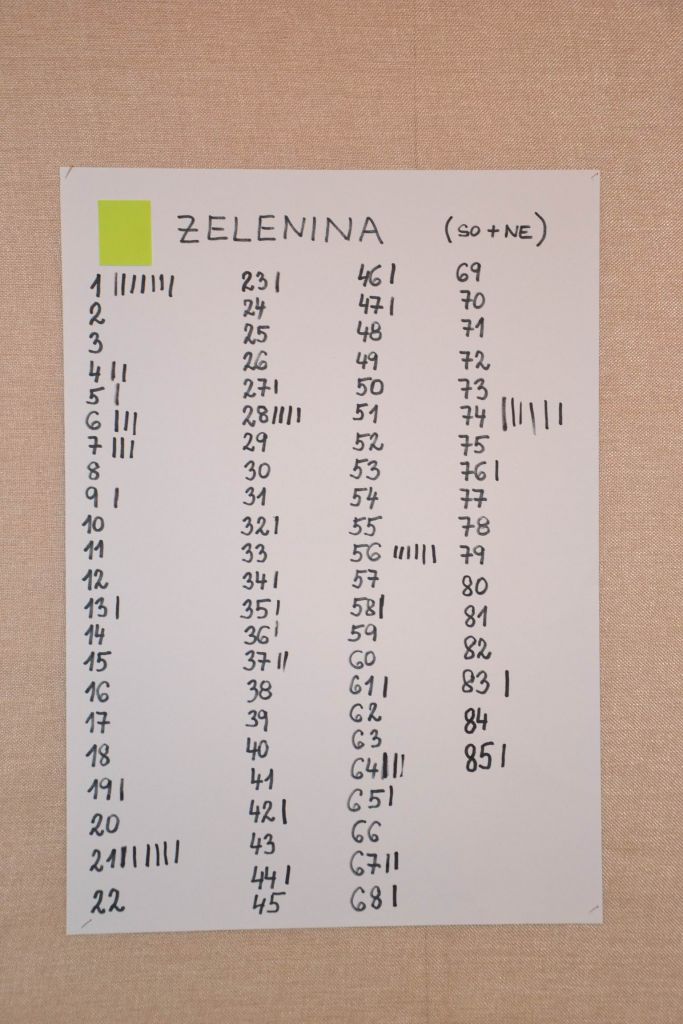 ZELENINA (SO + NE)
1 |||||||
2
3
4 ||
5 |
6 |||
7 |||
8
9 |
10
11
12
13 |
14
15
16
17
18
19 |
20
21 |||||||
22
23 |
24
25
26
27 |
28 ||||
29
30
31
32 |
33
34 |
35 |
36 |
37 ||
38
39
40
41
42 |
43
44 |
45
46 |
47 |
48
49
50
51
52
53
54
55
56 ||||||
57
58 |
59
60
61 |
62
63
64 |||
65 |
66
67 ||
68 |
69
70
71
72
73
74 ||||||
75
76 |
77
78
79
80
81
82
83 |
84
85 |